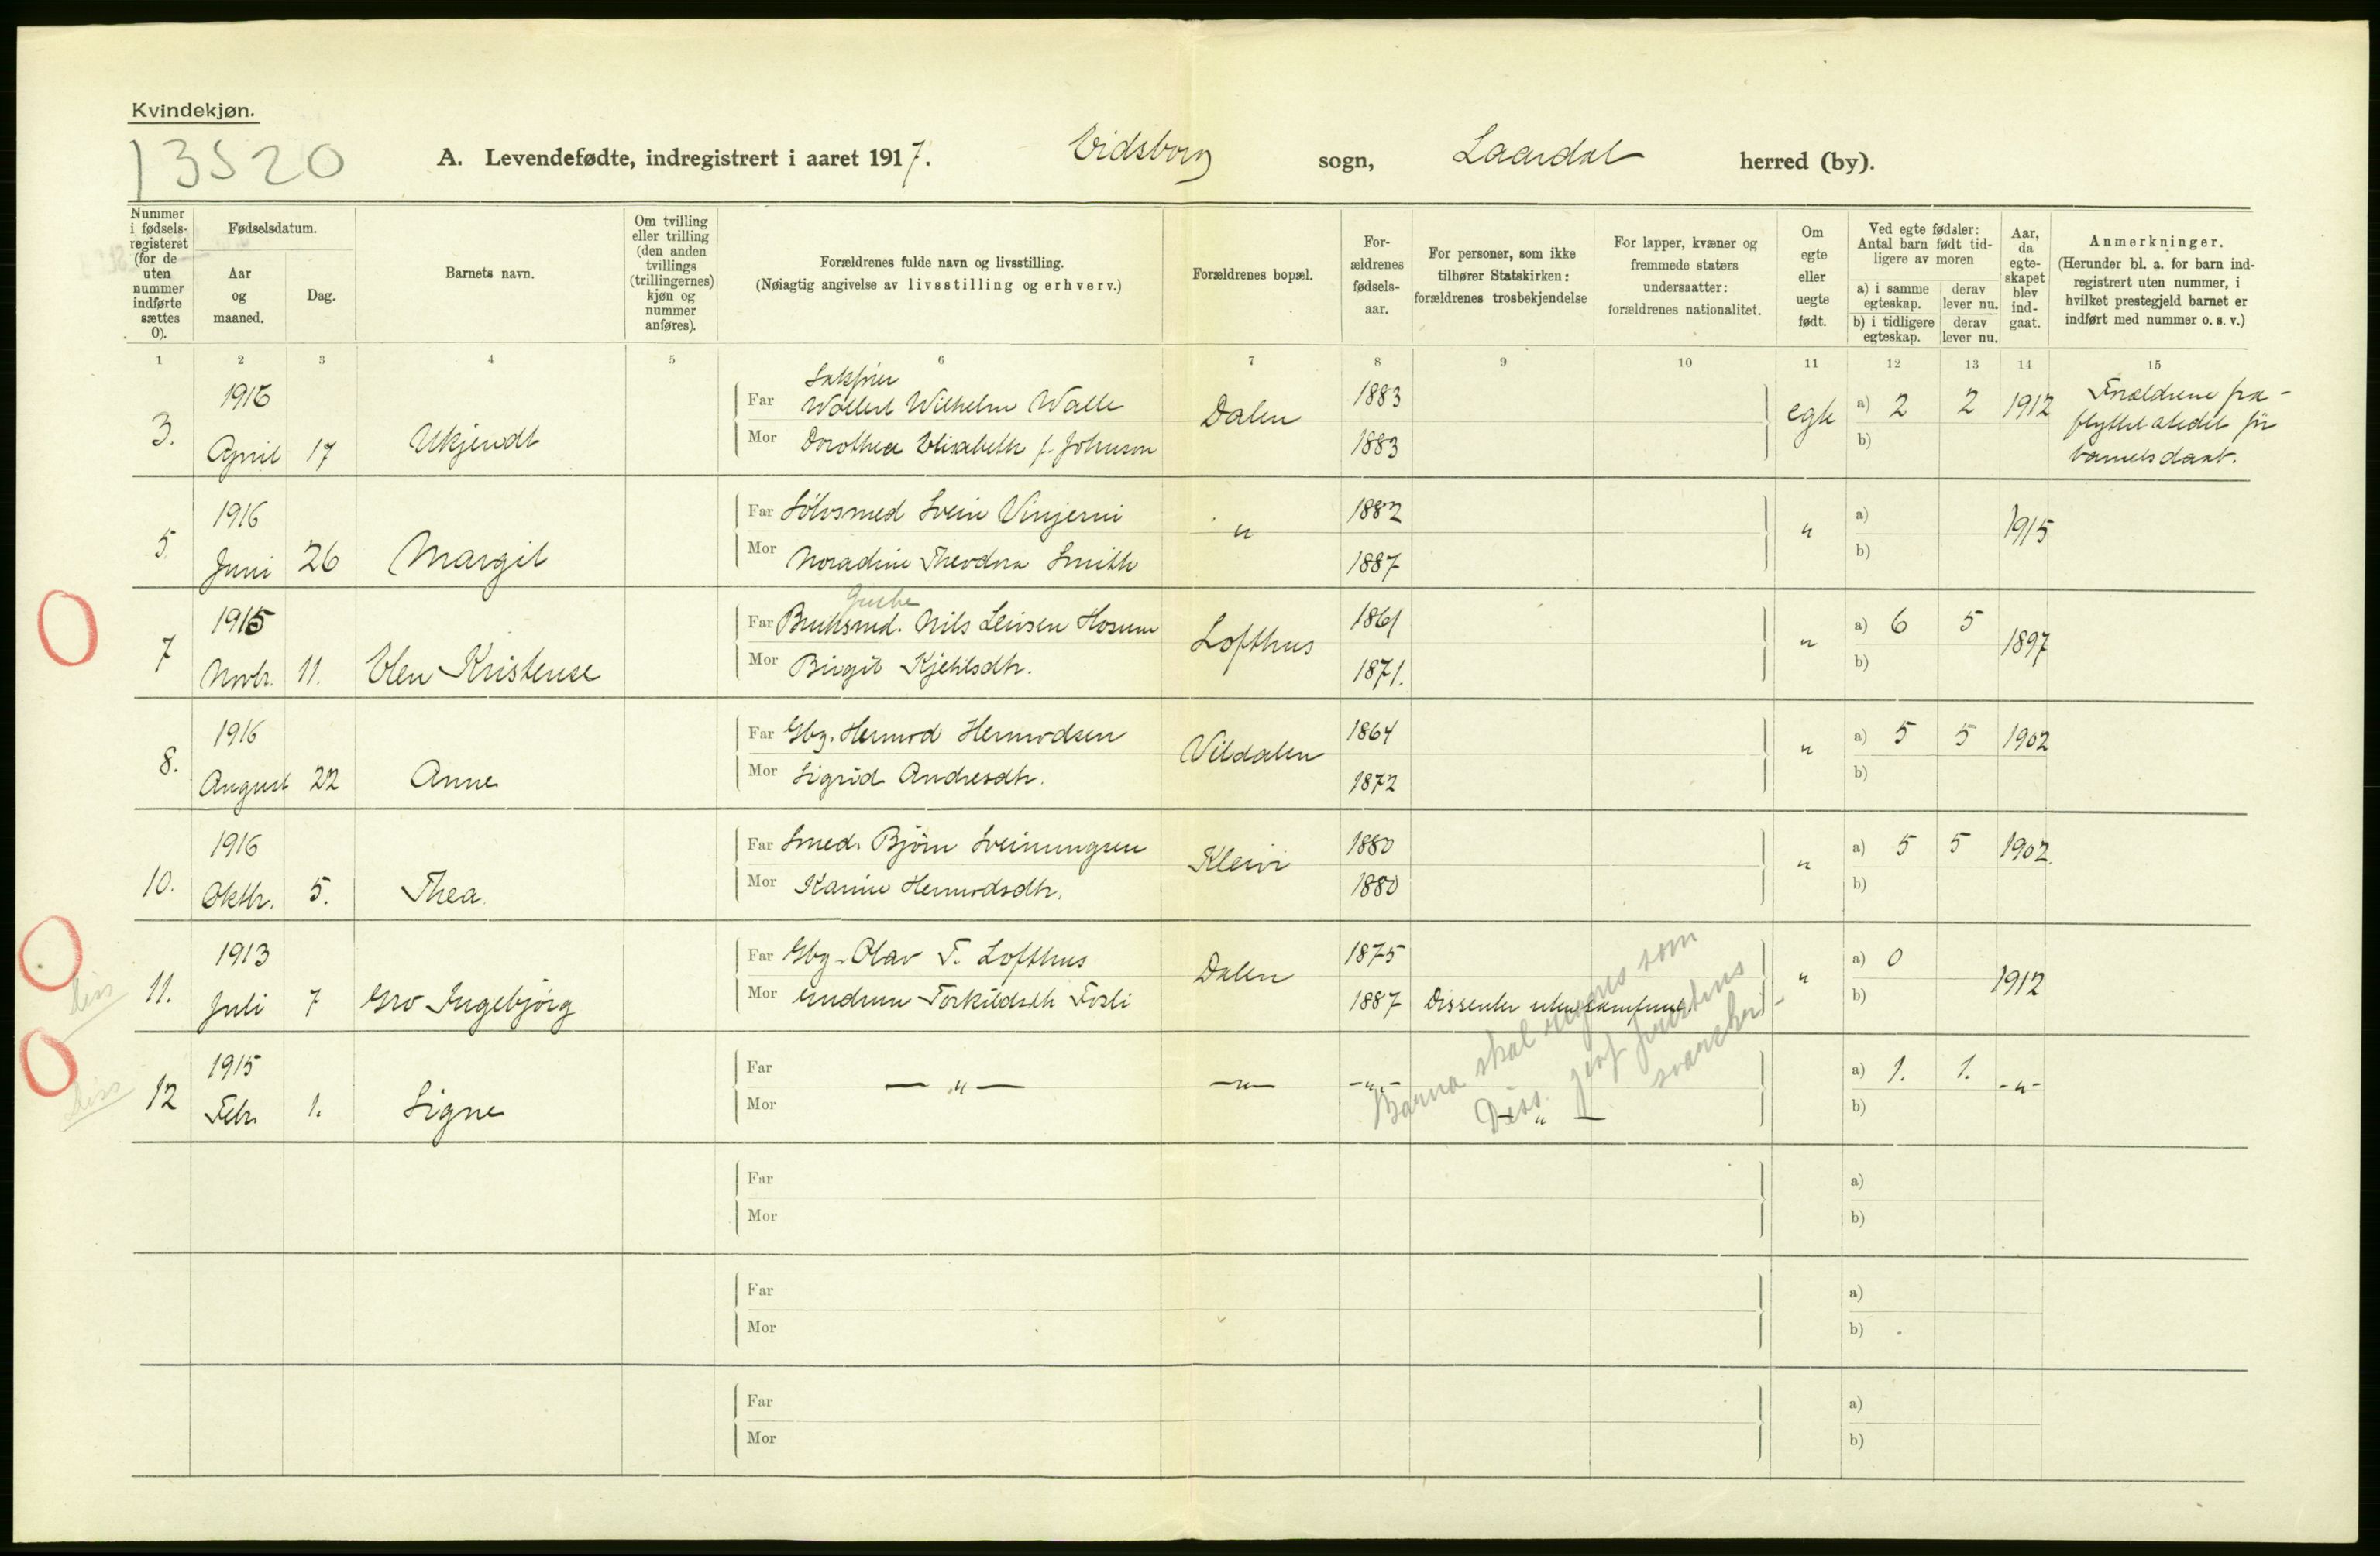 Kvindekjøn.
13520
A. Levendefødte, indregistrert i aaret 1917. Eidsborg sogn, Laardal herred (by).
Nummer i fødsels-registeret (for de uten nummer indførte sættes 0).
Fødselsdatum.
Aar og maaned.
Dag.
Barnets navn.
Om tvilling eller trilling (den anden tvillings (trillingernes) kjøn og nummer anføres).
Forældrenes fulde navn og livsstilling.
(Nøiagtig angivelse av livsstilling og erhverv.)
Forældrenes bopæl.
For-ældrenes fødsels-aar.
For personer, som ikke tilhører Statskirken: forældrenes trosbekjendelse
For lapper, kvæner og fremmede staters undersaatter: forældrenes nationalitet.
Om egte eller uegte født.
Ved egte fødsler: Antal barn født tid-ligere av moren
a) i samme egteskap. derav lever nu.
b) i tidligere egteskap. derav lever nu.
Aar, da egte-skapet blev ind-gaat.
Anmerkninger.
(Herunder bl. a. for barn ind-registrert uten nummer, i hvilket prestegjeld barnet er indført med nummer o. s. v.)
1 2 3 4 5 6 7 8 9 10 11 12 13 14 15
3. 1916 April 17 Ukjendt
Far Wollert Wilhelm Walle
Mor Dorothea Elisabeth f. Johnson
Dalen 1883 1883 egte a) 2 2 1912
b)
Forældrene fra-
flyttet stedet før
barnets daab.
5. 1916 Juni 26 Margit
Far Sølvsmed Svein Vinjerui
Mor Noradine Theodora Smith
" 1882 1887 " a) 1915
b)
7 1915 Novbr. 11. Olen Kristense
Far Bruksmd. Nils Leivsen Hosum
Mor Birgit Kjetilsdtr.
Lofthus 1861 1871. " a) 6 5 1897
b)
8. 1916 August 22 Anne
Far Gbr. Hermod Hermodsen
Mor Sigrid Andresdtr.
Vildalen 1864 1872 " a) 5 5 1902
b)
10. 1916 Oktbr. 5. Thea.
Far Smed. Bjørn Sveinungsen
Mor Karine Hermodsdtr.
Kleivi 1880 1880 " a) 5 5 1902.
b)
11. 1913 Juli 7 Gro Ingebjørg
Far Gbr. Olav T. Lofthus
Mor Gudrun Torkildsdtr Fosli
Dalen 1875 1887 Dissenter uten samfund. " a) 0 1912
b)
diss
12 1915 Febr. 1. Signe
Far
Mor
— " — — " — - " - — " — a) 1. 1. - " -
b)
diss
Barna skal regnes som
Diss.
Far
Mor
a)
b)
Far
Mor
a)
b)
Far
Mor
a)
b)